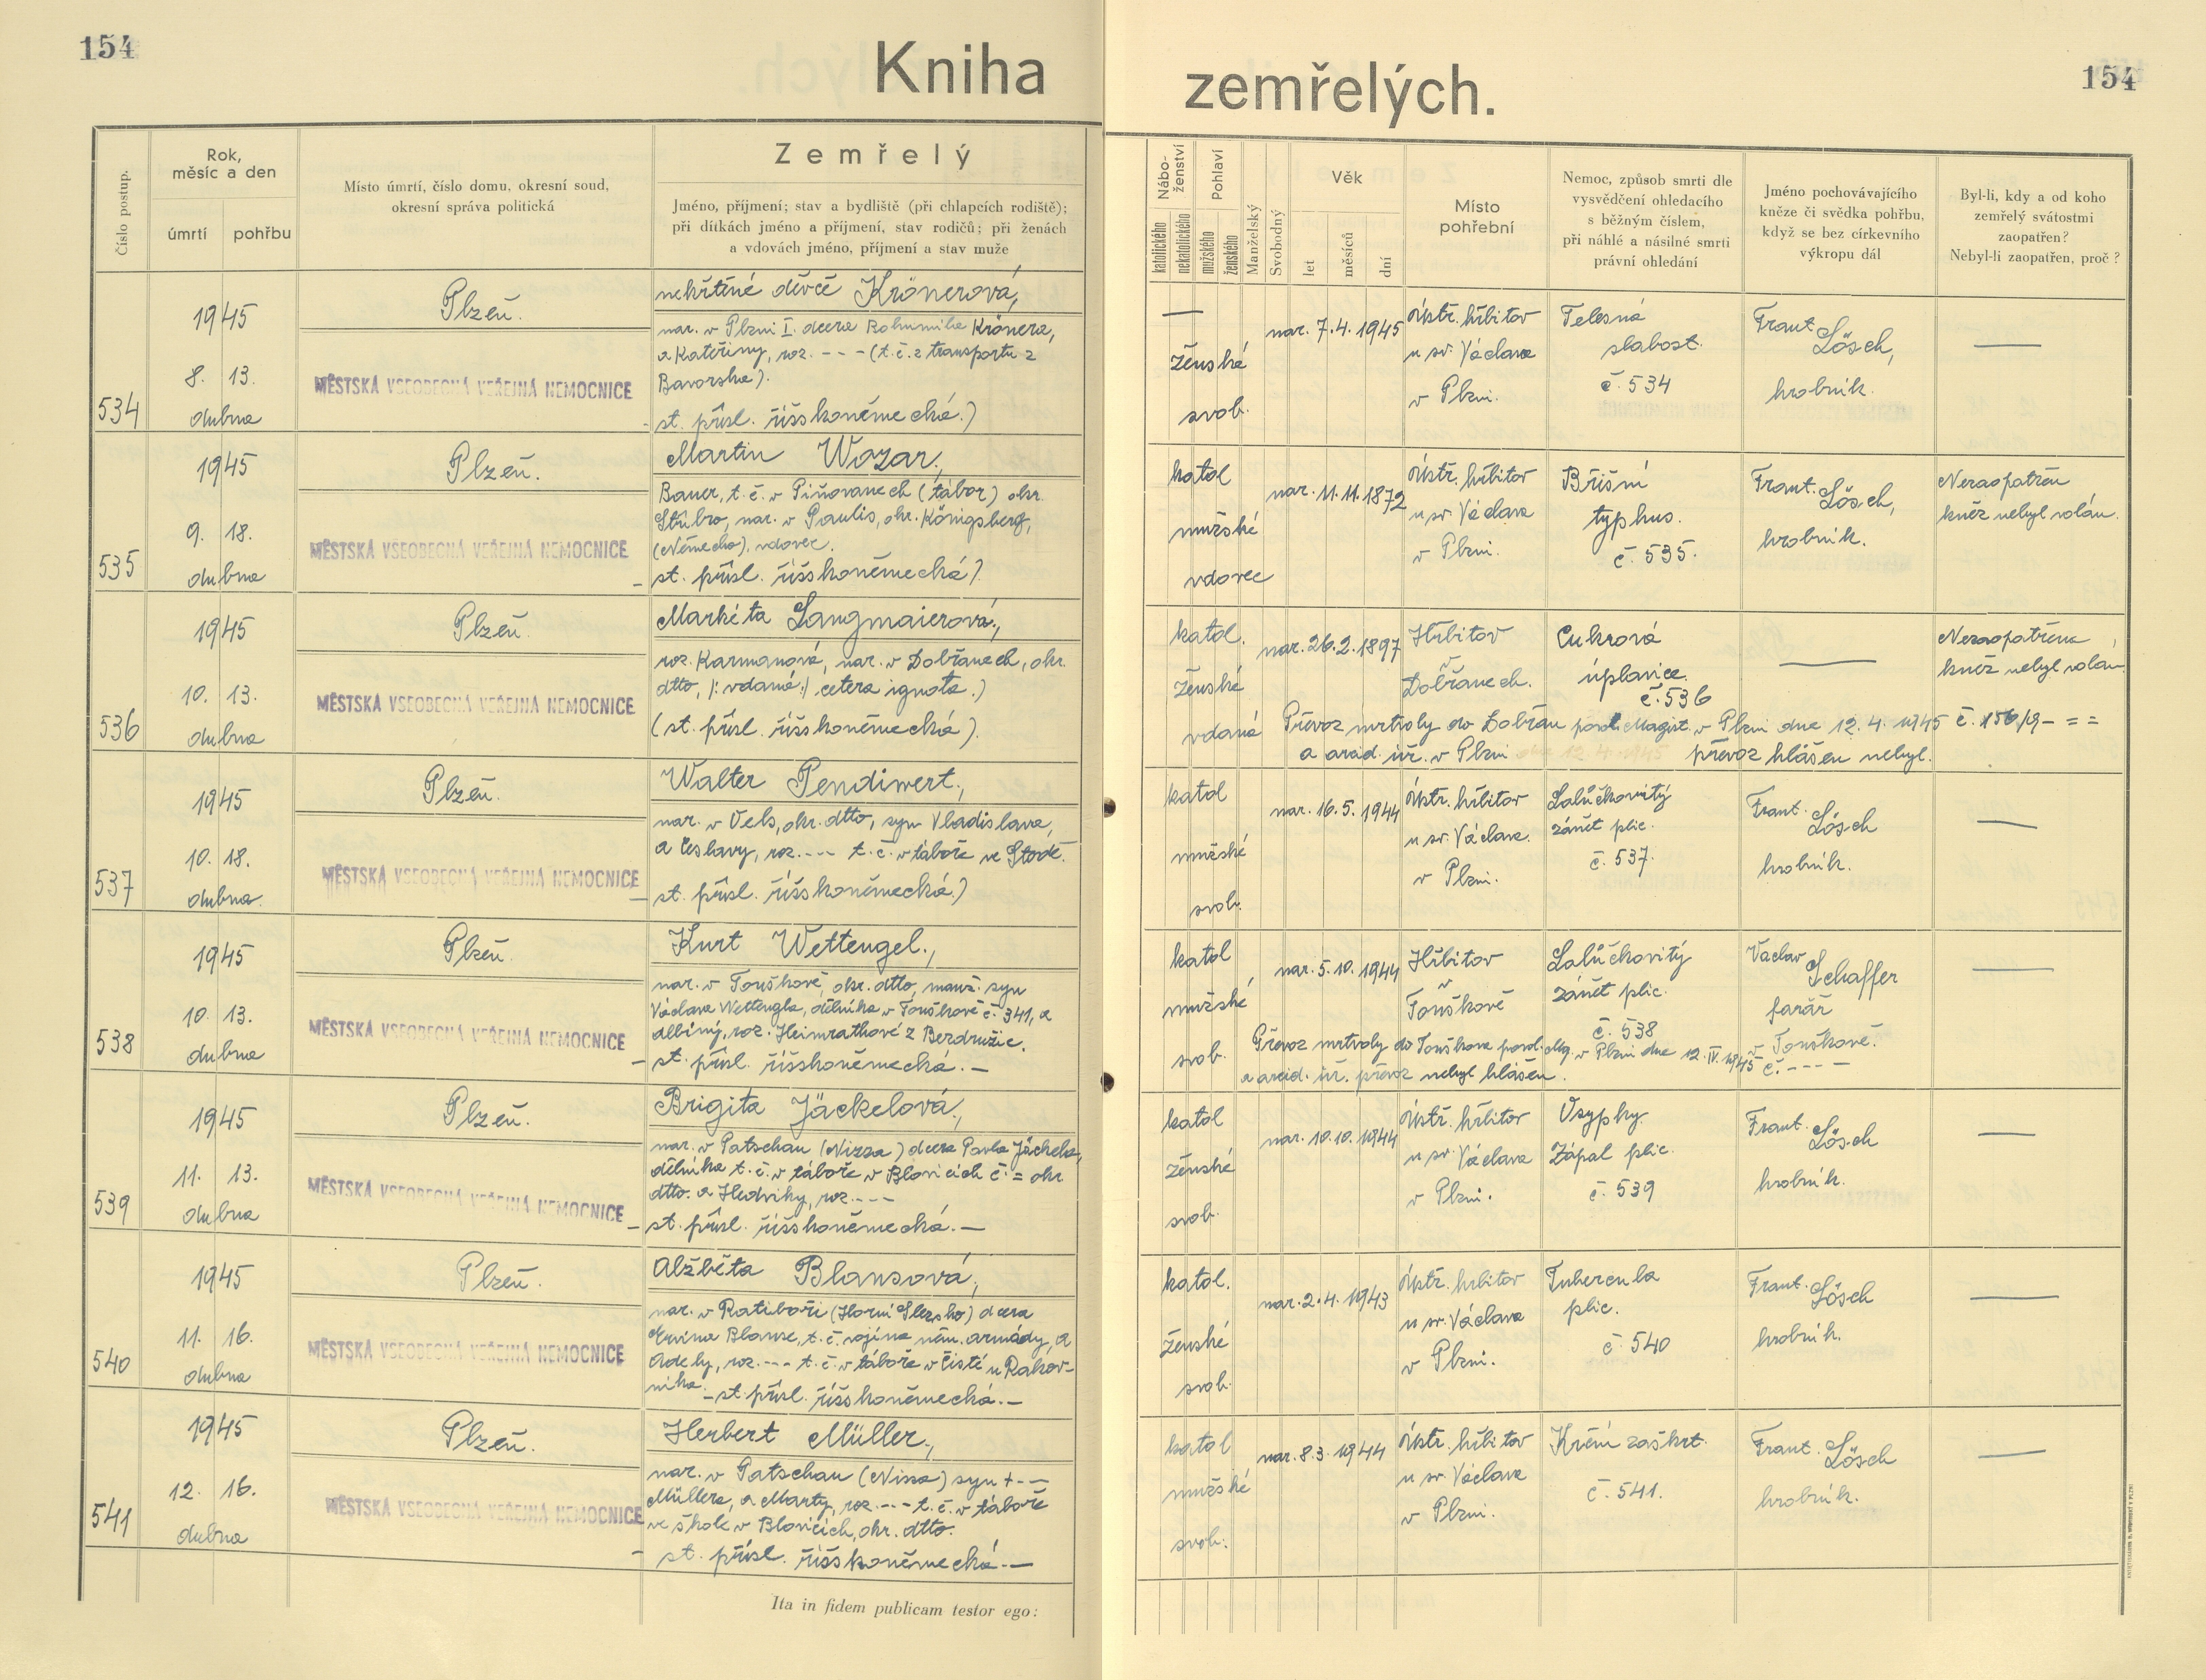 154
Kniha
zemřelých.
154
Číslo postup.
Rok,
měsíc a den
úmrtí
pohřbu
Místo úmrtí, číslo domu, okresní soud,
okresní správa politická
Zemřelý
Jméno, příjmení; stav a bydliště (při chlapcích rodiště);
při dítkách jméno a příjmení, stav rodičů; při ženách
a vdovách jméno, příjmení a stav muže
Nábo-
ženství
katolického
nekatolického
Pohlaví
mužského
ženského
Manželský
Svobodný
Věk
let
měsíců
dní
Místo
pohřební
Nemoc, způsob smrti dle
vysvědčení ohledacího
s běžným číslem,
při náhlé a násilné smrti
právní ohledání
Jméno pochovávajícího
kněze či svědka pohřbu,
když se bez církevního
výkropu dál
Byl-li, kdy a od koho
zemřelý svátostmi
zaopatřen?
Nebyl-li zaopatřen, proč?
534
1945
8. 13.
dubna
Plzeň.
MĚSTSKÁ VŠEOBECNÁ VEŘEJNÁ NEMOCNICE
nekřtěné děvče Krönerová,
nar. v Plzni I. dcera Bohumila Krönera,
a Kateřiny, roz. - - - (t. č. z transportu z
Bavorska).
st. přísl. říšskoněmecká.)
—
ženské
svob.
nar. 7.4. 1945
Ústř. hřbitov
u sv. Václava
v Plzni.
Tělesná
slabost.
č. 534
Frant. Lösch,
hrobník.
—
535
1945
9. 18.
dubna
Plzeň.
MĚSTSKÁ VŠEOBECNÁ VEŘEJNÁ NEMOCNICE
Martin Wozar,
Bauer, t. č. v Piňovanech (tábor) okr.
Stříbro, nar. v Paulis, okr. Königsberg,
(Německo), vdovec.
- st. přísl. říšskoněmecká)
katol
mužské
vdovec
nar. 11. 11. 1872
Ústř. hřbitov
u sv. Václava
v Plzni.
Břišní
typhus.
č. 535.
Frant. Lösch,
hrobník.
Nezaopatřen
kněz nebyl volán.
536
1945
10. 13.
dubna
Plzeň.
MĚSTSKÁ VŠEOBECNÁ VEŘEJNÁ NEMOCNICE
Markéta Langmaierová,
roz. Karmanová, nar. v Dobřanech, okr.
dtto, /: vdaná :/ cetera ignota.)
(st. přísl. říšskoněmecká).
katol.
ženské
vdaná
nar. 26. 2. 1897
Hřbitov
v
Dobřanech.
Cukrová
úplavice.
č. 536
—
Nezaopatřena
kněz nebyl volán.
Převoz mrtvoly do Dobřan povol. Magist. v Plzni dne 12. 4. 1945 č. 156/9 - = =
a arcid. úř. v Plzni převoz hlášen nebyl.
537
1945
10. 18.
dubna.
Plzeň.
MĚSTSKÁ VŠEOBECNÁ VEŘEJNÁ NEMOCNICE
Walter Pendiwert,
nar. v Vels, okr. dtto, syn Vladislava,
a Česlavy, roz. - - - t. č. v táboře ve Stodě.
- st. přísl. říšskoněmecká.)
katol
mužské
svob.
nar. 16. 5. 1944
Ústr. hřbitov
u sv. Václava.
v Plzni.
Lalůčkovitý
zánět plic.
č. 537.
Frant. Lösch
hrobník.
—
538
1945
10. 13.
dubna
Plzeň.
MĚSTSKÁ VŠEOBECNÁ VEŘEJNÁ NEMOCNICE
Kurt Wettengel,
nar. v Touškově, okr. dtto, manž. syn
Václava Wettengla, dělníka v Touškově č. 341, a
Albiny, roz. Heimrathové z Bezdružic.
- st. přísl. říšskoněmecká. —
katol
mužské
svob.
nar. 5. 10. 1944
Hřbitov
v
Touškově
Lalůčkovitý
zánět plic.
č. 538
Vaclav Schaffer
farář
v Touškově.
—
Převoz mrtvoly do Touškova povol. Mg. v Plzni dne 12. IV. 1945 č. - - - -
a arcid. úř. převoz nebyl hlášen.
539
1945
11. 13.
dubna
Plzeň.
MĚSTSKÁ VŠEOBECNÁ VEŘEJNÁ NEMOCNICE
Brigita Jäckelová,
nar. v Patschau (Nizza) dcera Pavla Jäckela,
dělníka t. č. v táboře v Blovicích č. = okr.
dtto. a Hedviky, roz. - - -
- st. přísl. říšskoněmecká. —
katol
ženské
svob.
nar. 10. 10. 1944
Ústř. hřbitov
u sv. Václava
v Plzni.
Vsypky.
Zápal plic.
č. 539
Frant. Lösch
hrobník.
—
540
1945
11. 16.
dubna
Plzeň.
MĚSTSKÁ VŠEOBECNÁ VEŘEJNÁ NEMOCNICE
Alžběta Blansová,
nar. v Ratiboři (Horní Slezsko) dcera
Ervína Blanse, t. č. vojína něm. armády, a
Adely, roz. - - - t. č. v táboře v Čisté u Rakov-
níka. - st. přísl. říšskoněmecká. —
katol.
ženské
svob.
nar. 2. 4. 1943
Ústř. hřbitov
u sv. Václava
v Plzni.
Tubercula
plic.
č 540
Frant. Lösch
hrobník.
—
541
1945
12. 16.
dubna
Plzeň.
MĚSTSKÁ VŠEOBECNÁ VEŘEJNÁ NEMOCNICE
Herbert Müller,
nar. v Patschau (Nissa) syn + - -
Müllera, a Marty, roz. - - - t. č. v táboře
ve škole v Blovicích, okr. dtto.
- st. přísl. říšskoněmecká. —
katol
mužské
svob.
nar. 8. 3. 1944
Ústř. hřbitov
u sv. Václava
v Plzni.
Krční záškrt.
č. 541.
Frant. Lösch
hrobník.
—
Ita in fidem publicam testor ego: